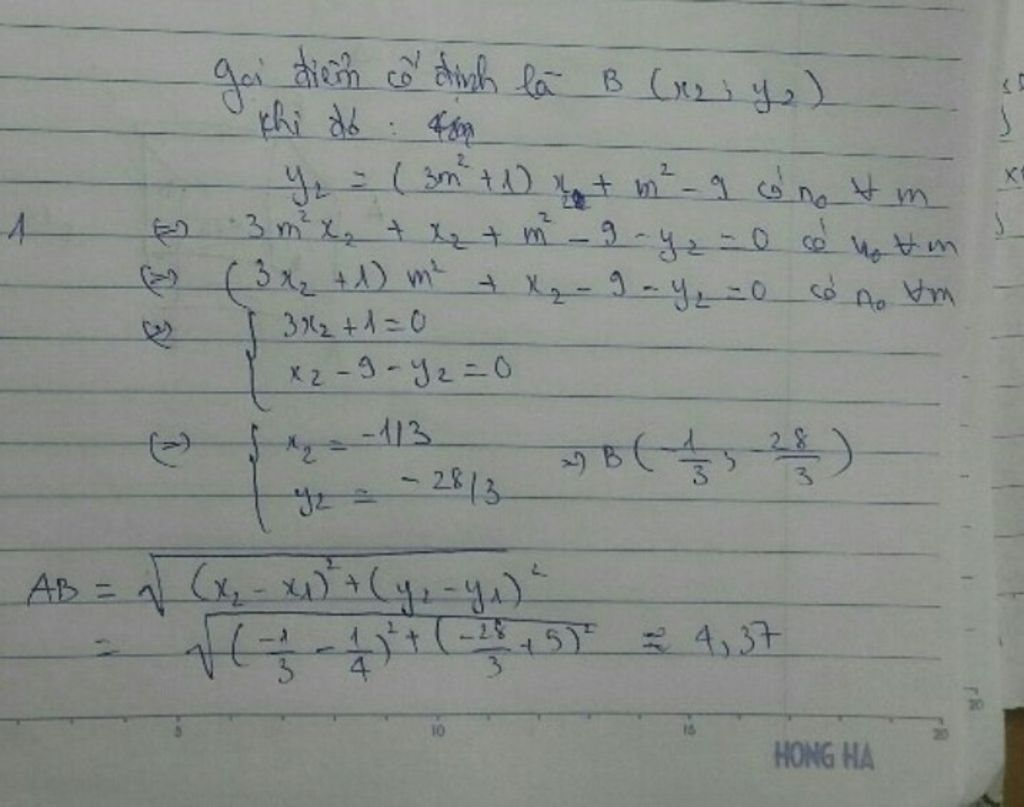 gọi điểm cố định là B (x₂; y₂)
khi đó :
y₂ = (3m² + 1) x₂ + m² - 9 có n₀ ∀ m
1 <=> 3m²x₂ + x₂ + m² - 9 - y₂ = 0 có n₀ ∀m
<=> (3x₂ + 1) m² + x₂ - 9 - y₂ = 0 có n₀ ∀m
<=> { 3x₂ + 1 = 0
x₂ - 9 - y₂ = 0
<=> { x₂ = -1/3
y₂ = -28/3
=> B (-1/3; -28/3)
AB = √(x₂ - x₁)² + (y₂ - y₁)²
= √(-1/3 - 1/4)² + (-28/3 + 5)² ≈ 4,37
5 10 15 20
HONG HA
20